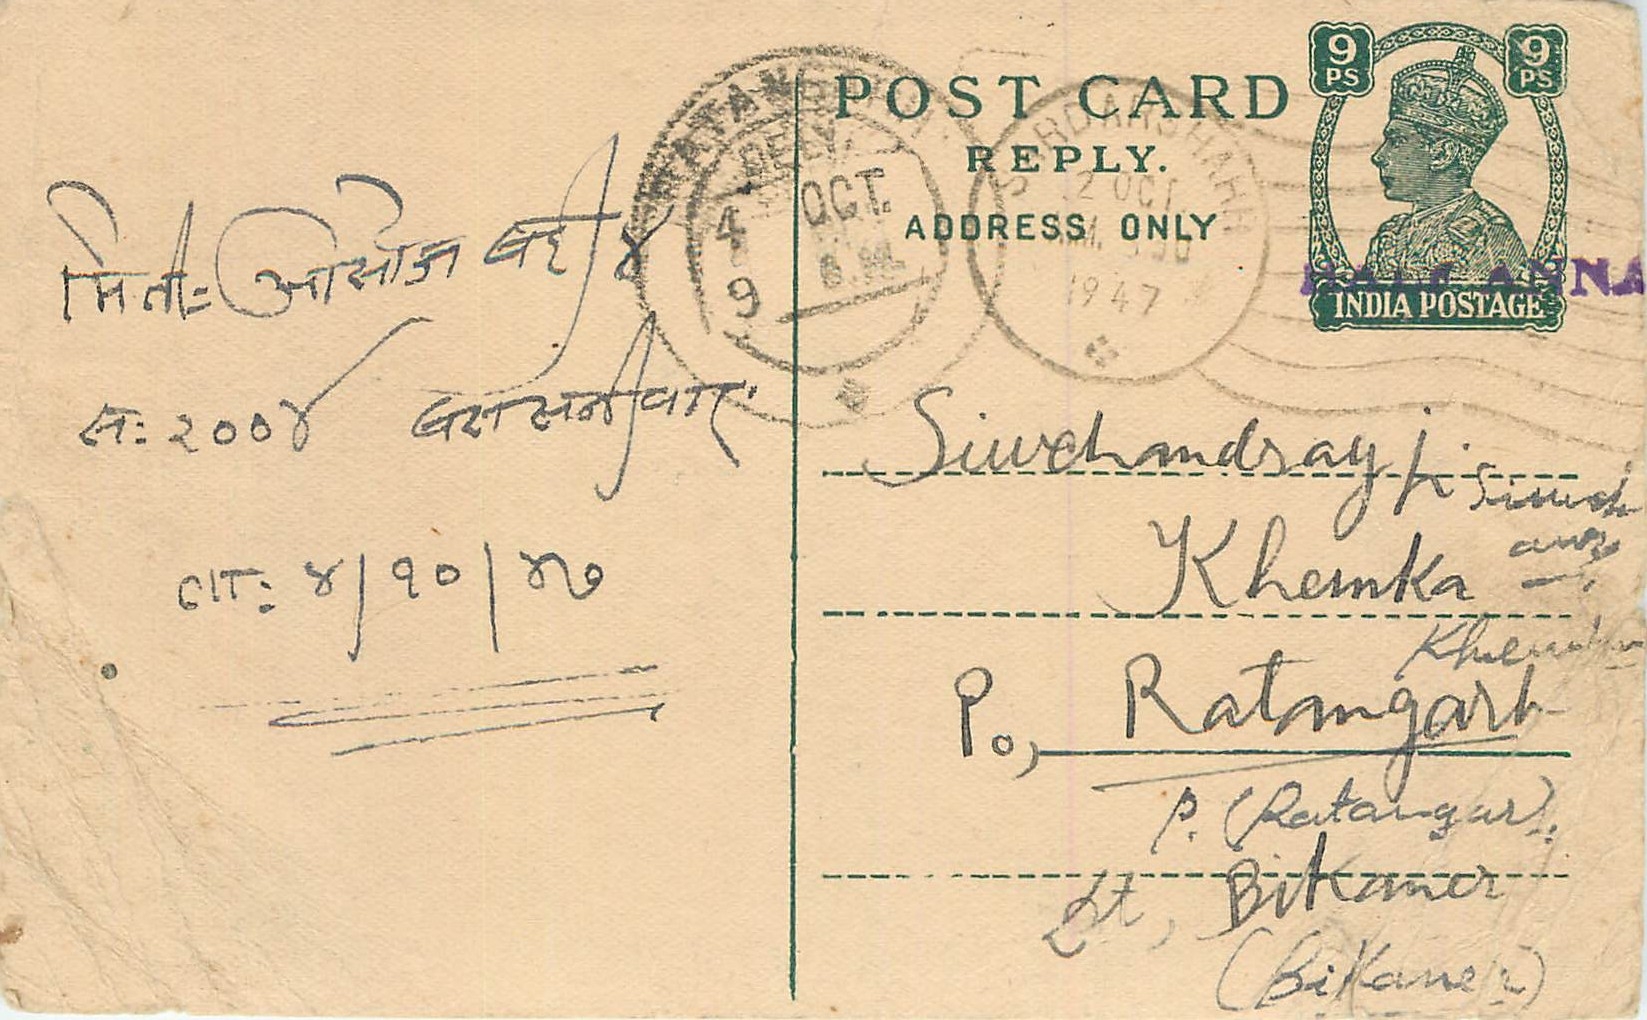 POST CARD
REPLY.
ADDRESS ONLY
9 PS
9 PS
INDIA POSTAGE
HALF ANNA
RATANGARH
DELY.
4 OCT.
9
SARDARSHAHR
2 OCT
1947
मिती= आसोज बदी ४
सं: २००४ बार सनीवार
ता: ४/१०/४७
Siwchandray ji
Khemka
Khemka
Po, Ratangarh
P. (Ratangar).
St, Bikaner
(Bikaner)